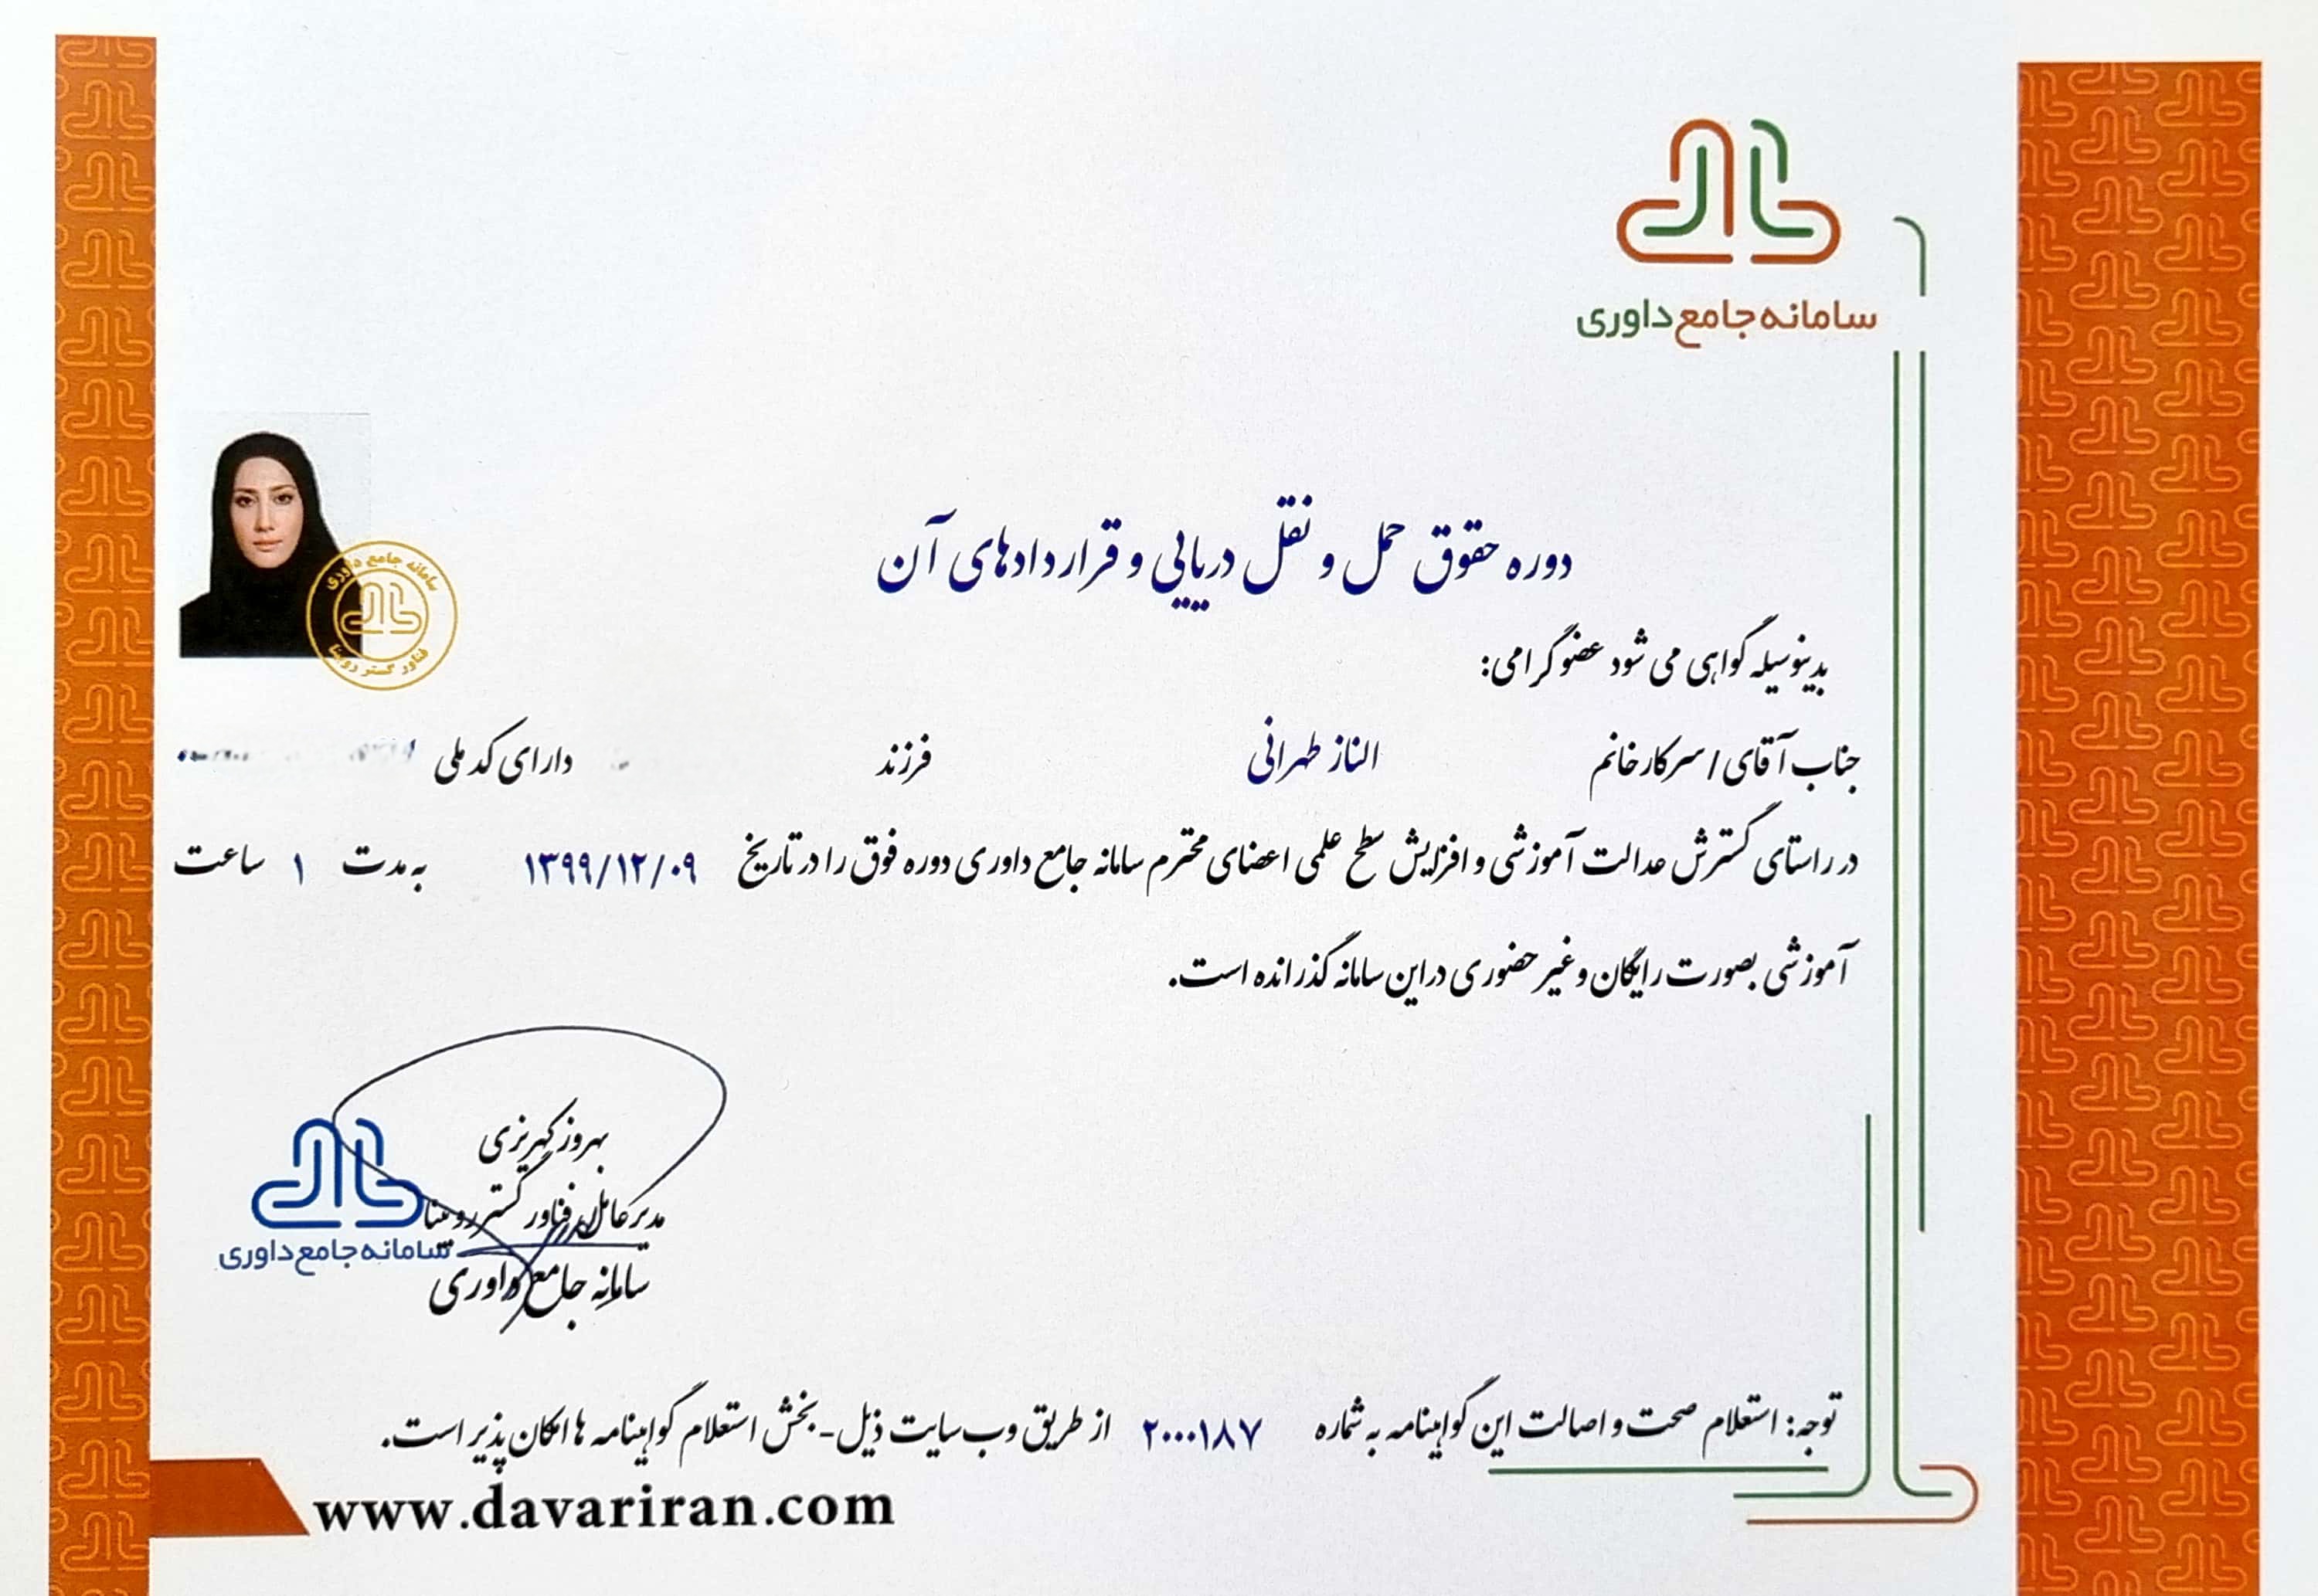 سامانه جامع داوری
دوره حقوق حمل و نقل دریایی و قراردادهای آن
سامانه جامع داوری
فناور گستر رومینا
بدینوسیله گواهی می شود عضو گرامی:
جناب آقای / سرکار خانم الناز طهرانی فرزند دارای کد ملی
در راستای گسترش عدالت آموزشی و افزایش سطح علمی اعضای محترم سامانه جامع داوری دوره فوق را در تاریخ ۱۳۹۹/۱۲/۰۹ به مدت ۱ ساعت
آموزشی بصورت رایگان و غیر حضوری در این سامانه گذرانده است.
بهروز کهریزی
مدیرعامل فناور گستر رومینا
سامانه جامع داوری
سامانه جامع داوری
توجه: استعلام صحت و اصالت این گواهینامه به شماره ۲۰۰۰۱۸۷ از طریق وب سایت ذیل- بخش استعلام گواهینامه ها امکان پذیر است.
www.davariran.com